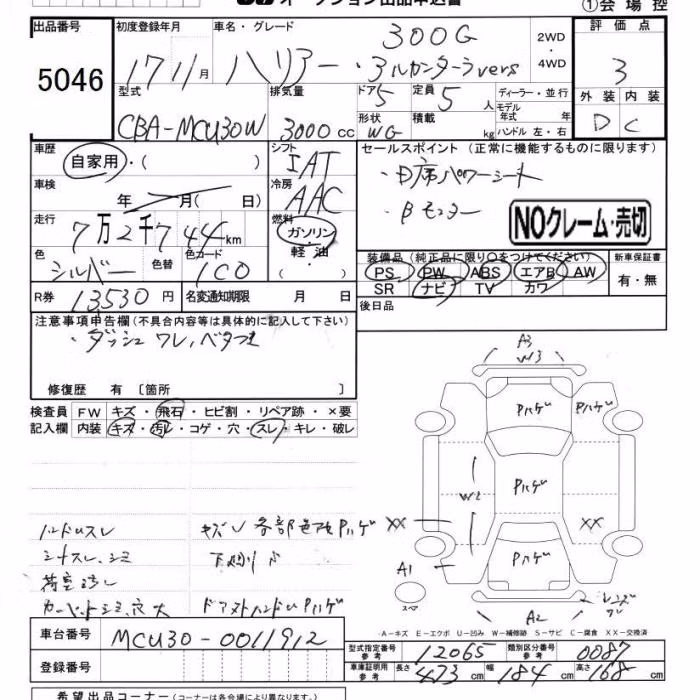 オークション出品申込書
①会場控
出品番号 5046
初度登録年月 17 11月
車名・グレード 300G
ハリアー・アルカンターラvers
2WD
・4WD
評価点 3
型式 CBA-MCU30W
排気量 3000cc
ドア 5
形状 WG
定員 5人
積載 kg
ディーラー・並行
モデル年式 年
ハンドル 左・右
外装 D
内装 C
車歴 自家用・( )
シフト IAT
セールスポイント (正常に機能するものに限ります)
車検 年 月( 日)
冷房 AAC
・D席パワーシート
走行 7万2千744km
燃料 ガソリン
軽油
( )
・Bモニター
NOクレーム・売切
色 シルバー
色替
色コード 1C0
装備品 (純正品に限り〇をつけてください)
PS PW ABS エアB AW
SR ナビ TV カワ
新車保証書
有・無
R券 13530円
名変通知期限 月 日
後日品
注意事項申告欄(不具合内容等は具体的に記入して下さい)
・ダッシュワレ,ベタつき
修復歴 有 [箇所 ]
検査員 FW キズ・飛石・ヒビ割・リペア跡・×要
記入欄 内装 キズ・汚れ・コゲ・穴・スレ・キレ・破レ
A3
W3
Pハゲ Pハゲ
W2 Pハゲ
XX XX
Pハゲ
A1
スペア
A2
レンズワレ
ハンドルスレ
キズ 各部色アセPハゲ
シートスレ,シミ
下廻りサ
荷室汚レ
カーペットシミ,穴大
ドアアウトハンドルPハゲ
A−キズ E−エクボ U−凹み W−補修跡 S−サビ C−腐食 XX−交換済
車台番号 MCU30-0011912
型式指定番号 参考 12065
類別区分番号 参考 0087
登録番号
車庫証明用 参考 長さ 473cm 幅 184cm 高さ 168cm
希望出品コーナー (コーナーは各会場により異なります。)